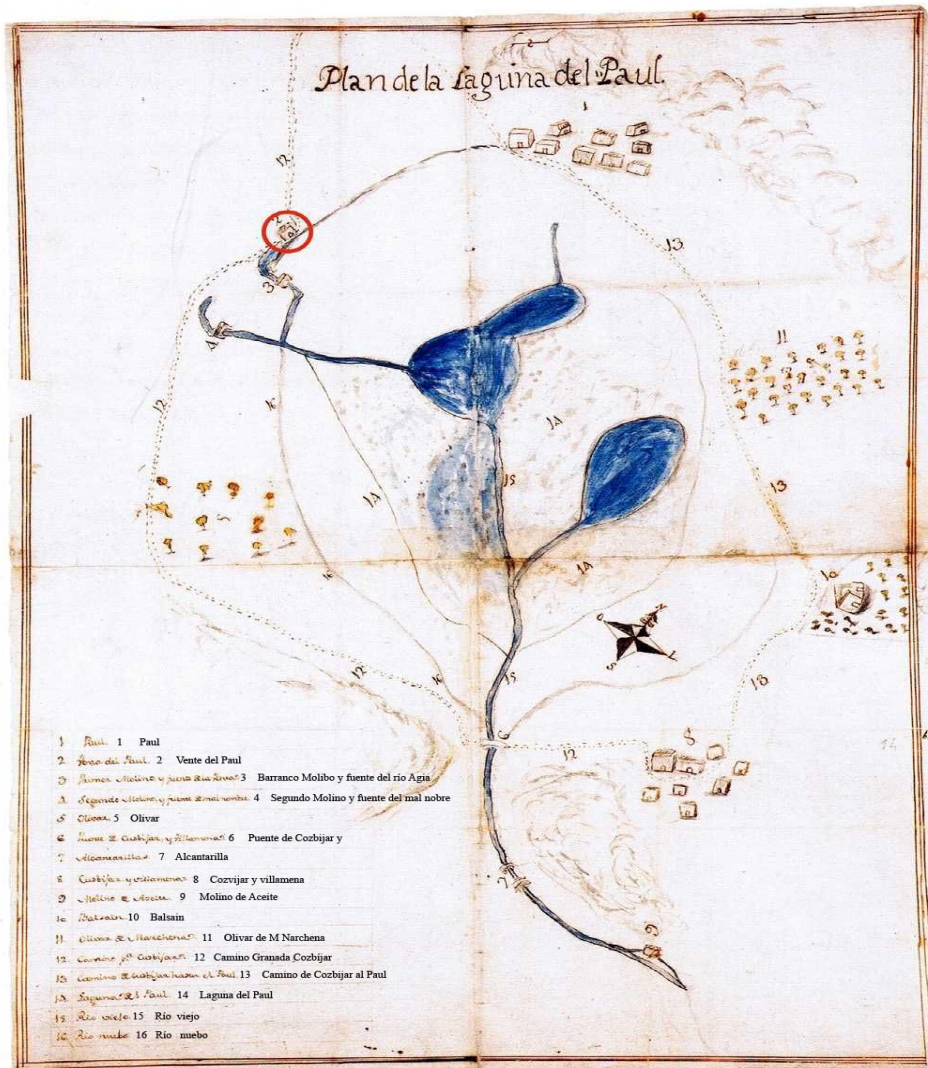 Plan de la Laguna del Paul.
1
2
12
13
3
4
11
12
16
14
15
14
13
5
10
14
16
12
16
15
18
6
12
8
7
9
1 Paul 1 Paul
2 Venta del Paul 2 Vente del Paul
3 Primer Molino y fuente 3 Barranco Molibo y fuente del río Agia
4 Segundo Molino y fuente 4 Segundo Molino y fuente del mal nobre
5 Olivar 5 Olivar
6 Puente de Cozbijar y Villamena 6 Puente de Cozbijar y
7 Alcantarilla 7 Alcantarilla
8 Cusbijar y villamena 8 Cozvijar y villamena
9 Molino de Aceite 9 Molino de Aceite
10 Balsain 10 Balsain
11 Olivar de Marchena 11 Olivar de M Narchena
12 Camino 12 Camino Granada Cozbíjar
13 Camino de Cusbijar 13 Camino de Cozbijar al Paul
14 Laguna del Paul 14 Laguna del Paul
15 Rio viejo 15 Río viejo
16 Rio nuebo 16 Río nuebo